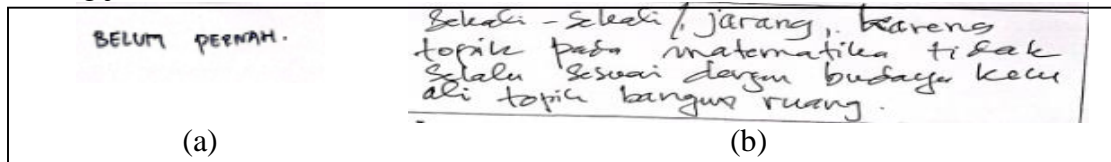 BELUM PERNAH.
Sekali-sekali / jarang, karena
topik pada matematika tidak
selalu sesuai dengan budaya kecu
ali topik bangun ruang.
(a)
(b)